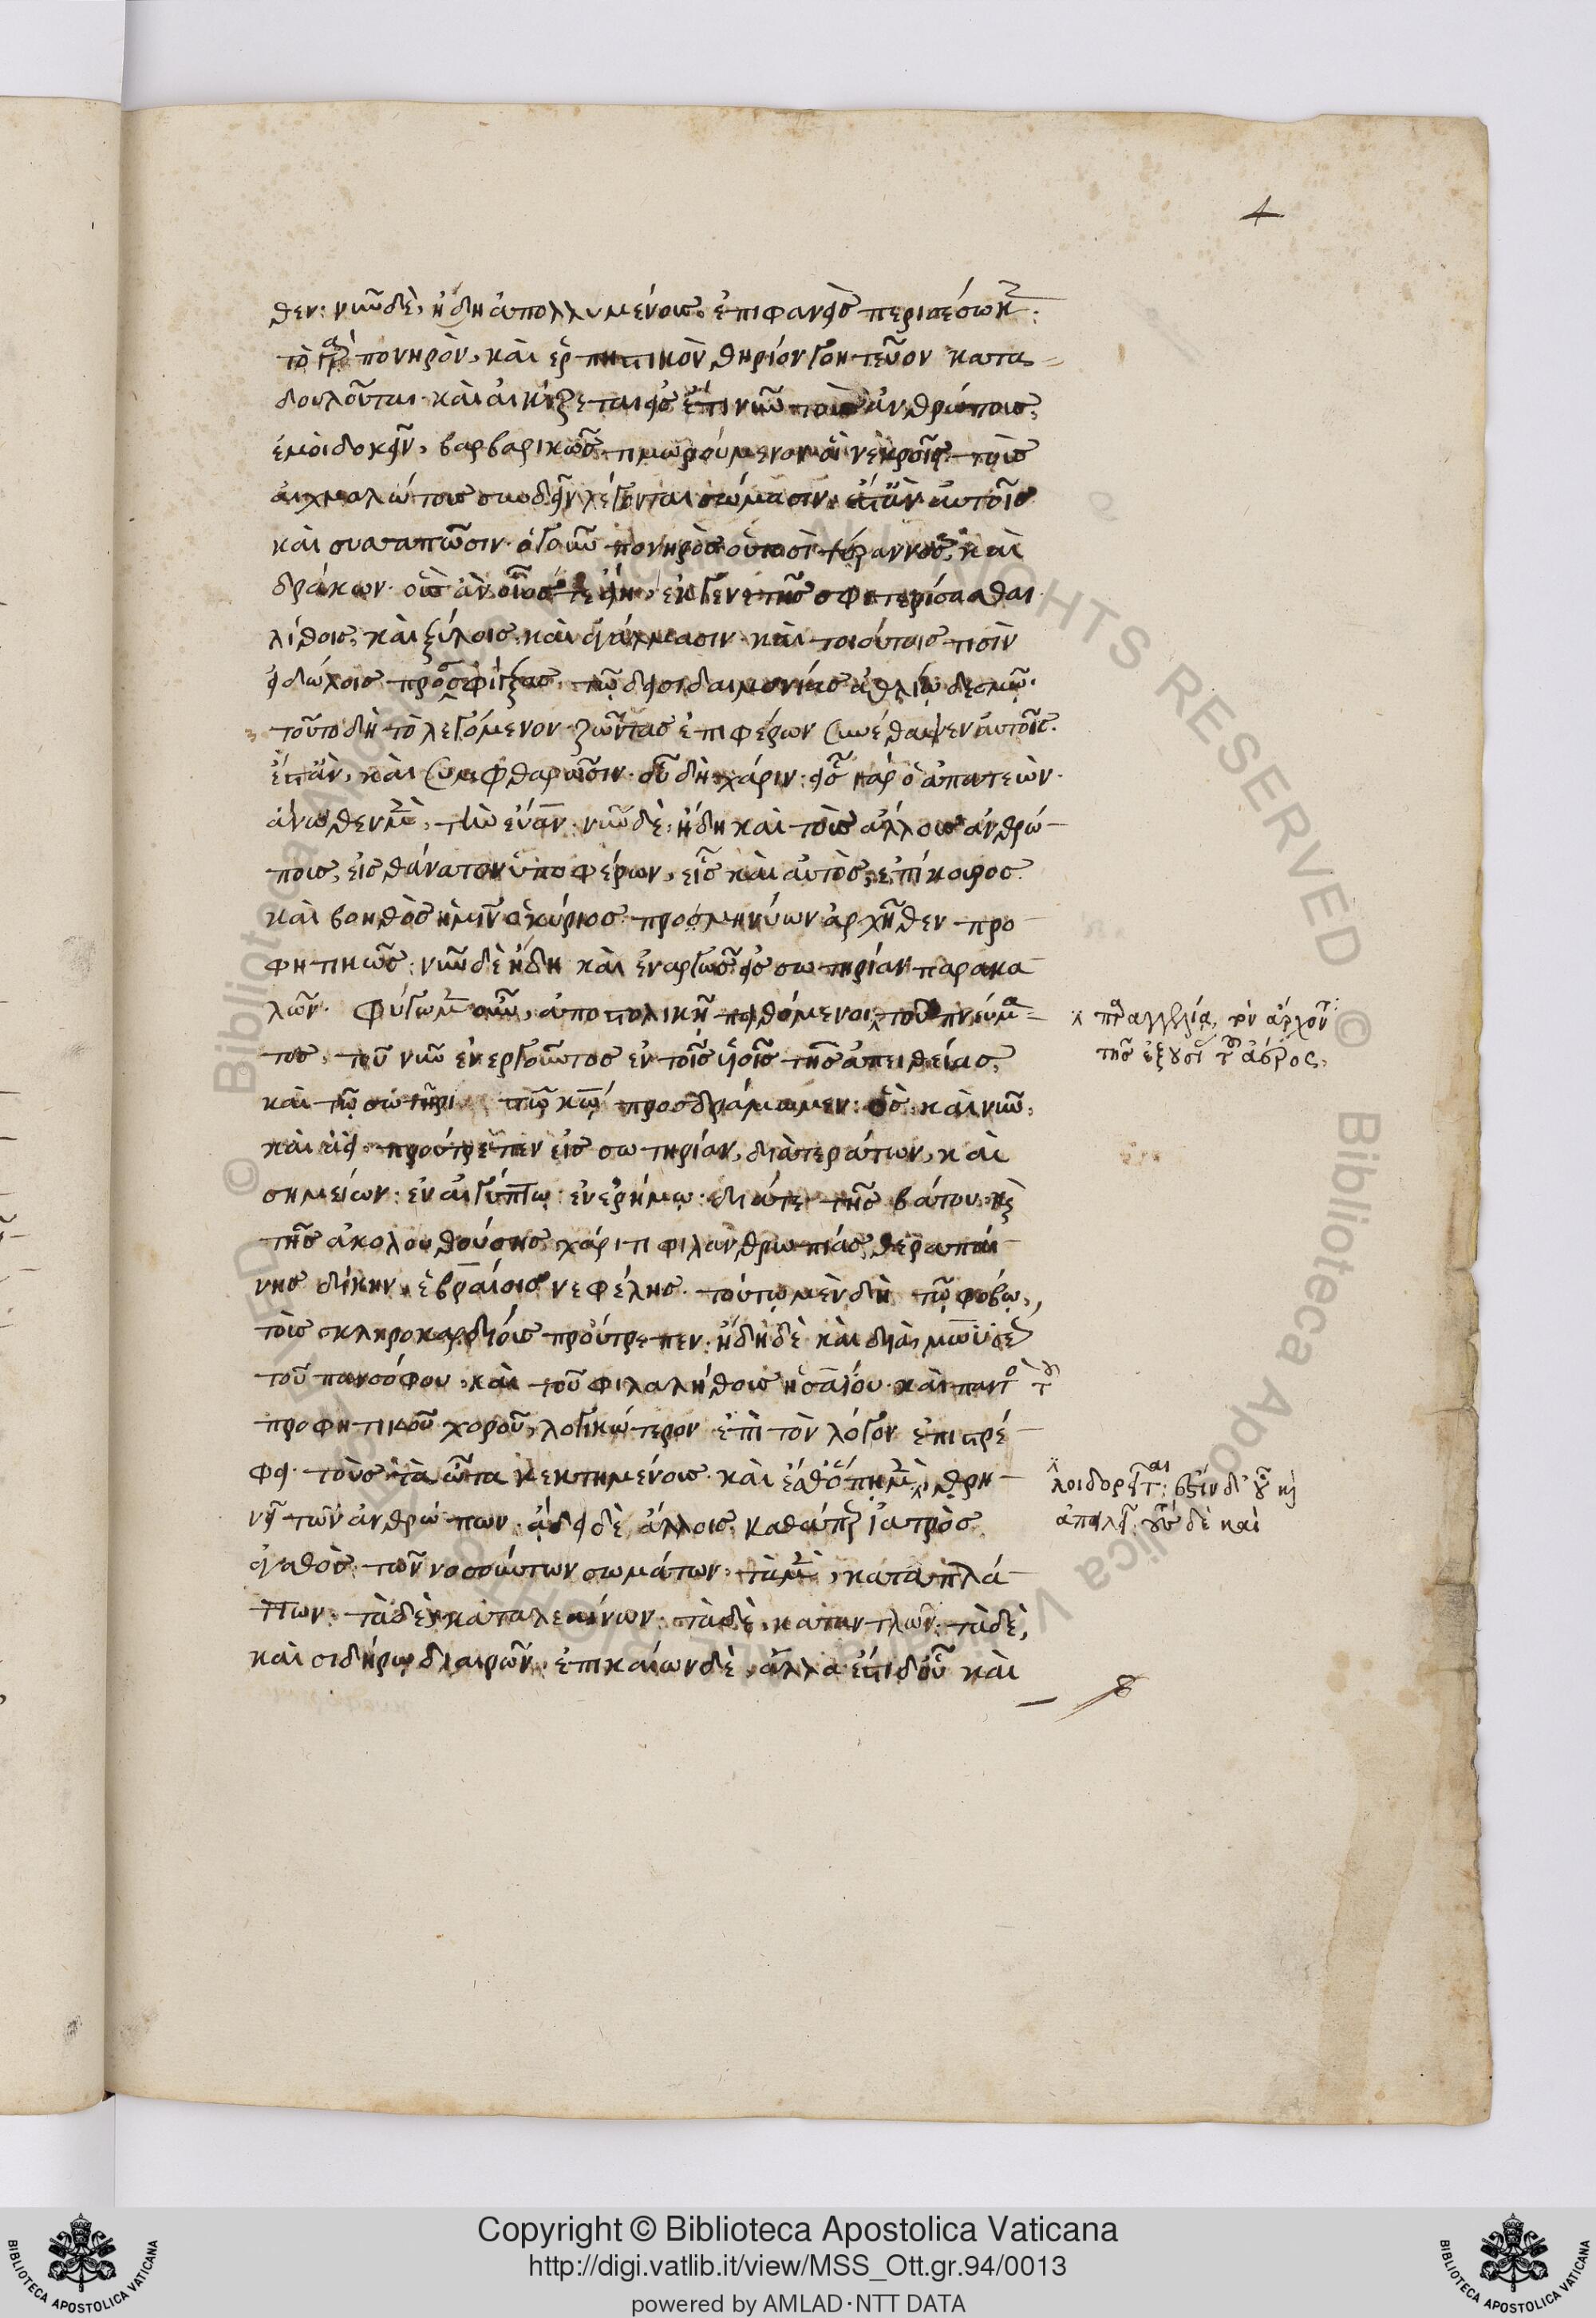 4
θεν: νῦν δὲ, ἤδη ἀπολλυμένους ἐπιφανεὶς περισέσωκε:
τὸ γὰρ πονηρὸν, καὶ ἑρπηστικὸν θηρίον γοητεῦον κατα
δουλοῦται· καὶ αἰκίζεται εἰς ἔτι νῦν τοὺς ἀνθρώπους,
ἐμοὶ δοκεῖν, βαρβαρικῶς τιμωρούμενον οἳ νεκροῖς τοὺς
αἰχμαλώτους συνδεῖν λέγονται σώμασιν, ἔστ' ἂν αὐτοῖς
καὶ συσσαπῶσιν· ὁ γοῦν πονηρὸς οὑτοσὶ τύραννος, καὶ
δράκων· οὓς ἂν οἷός τε εἴη, ἐκ γενετῆς σφετερίσασθαι
λίθοις, καὶ ξύλοις, καὶ ἀγάλμασιν· καὶ τοιούτοις τισὶν
εἰδώλοις προσσφίγξας, τῷ δεισιδαιμονίας ἀθλίῳ δεσμῷ·
τοῦτο δὴ τὸ λεγόμενον ζῶντας ἐπιφέρων συνέθαψεν αὐτοῖς·
ἔστ' ἂν, καὶ συμφθαρῶσιν· οὗ δὴ χάριν: εἷς γὰρ ὁ ἀπατεὼν·
ἄνωθεν μὲν, τὴν εὔαν· νῦν δὲ, ἤδη καὶ τοὺς ἄλλους ἀνθρώ
πους, εἰς θάνατον ὑποφέρων, εἷς καὶ αὐτὸς, ἐπίκουρος
καὶ βοηθὸς ἡμῖν ὁ κύριος· προσμηνύων ἀρχῆθεν προ
φητικῶς: νῦν δὲ ἤδη καὶ ἐναργῶς εἰς σωτηρίαν παρακα
λῶν· φύγωμεν οὖν, ἀποστολικῇ πειθόμενοι, τοῦ πνεύμα
τος, τοῦ νῦν ἐνεργοῦντος ἐν τοῖς υἱοῖς τῆς ἀπειθείας,
καὶ τῷ σωτῆρι τῷ κῷ προσδράμωμεν: ὃς, καὶ νῦν,
καὶ ἀεὶ προύτρεπεν εἰς σωτηρίαν, διὰ τεράτων, καὶ
σημείων: ἐν αἰγύπτῳ: ἐν ἐρήμῳ· διά τε τῆς βάτου· καὶ
τῆς ἀκολουθούσης χάριτι φιλανθρωπίας θεραπαί
νης δίκην, ἑβραίοις νεφέλης· τούτῳ μὲν δὴ τῷ φόβῳ,
τοὺς σκληροκαρδίους προύτρεπεν: ἤδη δὲ καὶ διὰ μωϋσέως
τοῦ πανσόφου, καὶ τοῦ φιλαλήθους ἡσαΐου· καὶ παντὸς τοῦ
προφητικοῦ χοροῦ, λογικώτερον ἐπὶ τὸν λόγον ἐπιστρέ
φει τοὺς τὰ ὦτα κεκτημένους· καὶ ἔσθ' ὅπῃ μὲν, θρη
νεῖ τῶν ἀνθρώπων· ᾄδει δὲ ἄλλοις, καθάπερ ἰατρὸς
ἀγαθὸς, τῶν νοσούντων σωμάτων, τὰ μὲν, καταπλά
ττων· τὰ δὲ, καταλεαίνων· τὰ δὲ, καταντλῶν· τὰ δὲ,
καὶ σιδήρῳ διαιρῶν, ἐπικαίων δὲ, ἄλλα· ἔστι δ' οὗ καὶ
παραγγελίᾳ, τὸν ἄρχοντα
τῆς ἐξουσίας τοῦ ἀέρος,
λοιδορεῖται· ἔστιν δ' οὗ καὶ
ἀπειλεῖ· οὓς δὲ καὶ
Copyright © Biblioteca Apostolica Vaticana
http://digi.vatlib.it/view/MSS_Ott.gr.94/0013
powered by AMLAD·NTT DATA